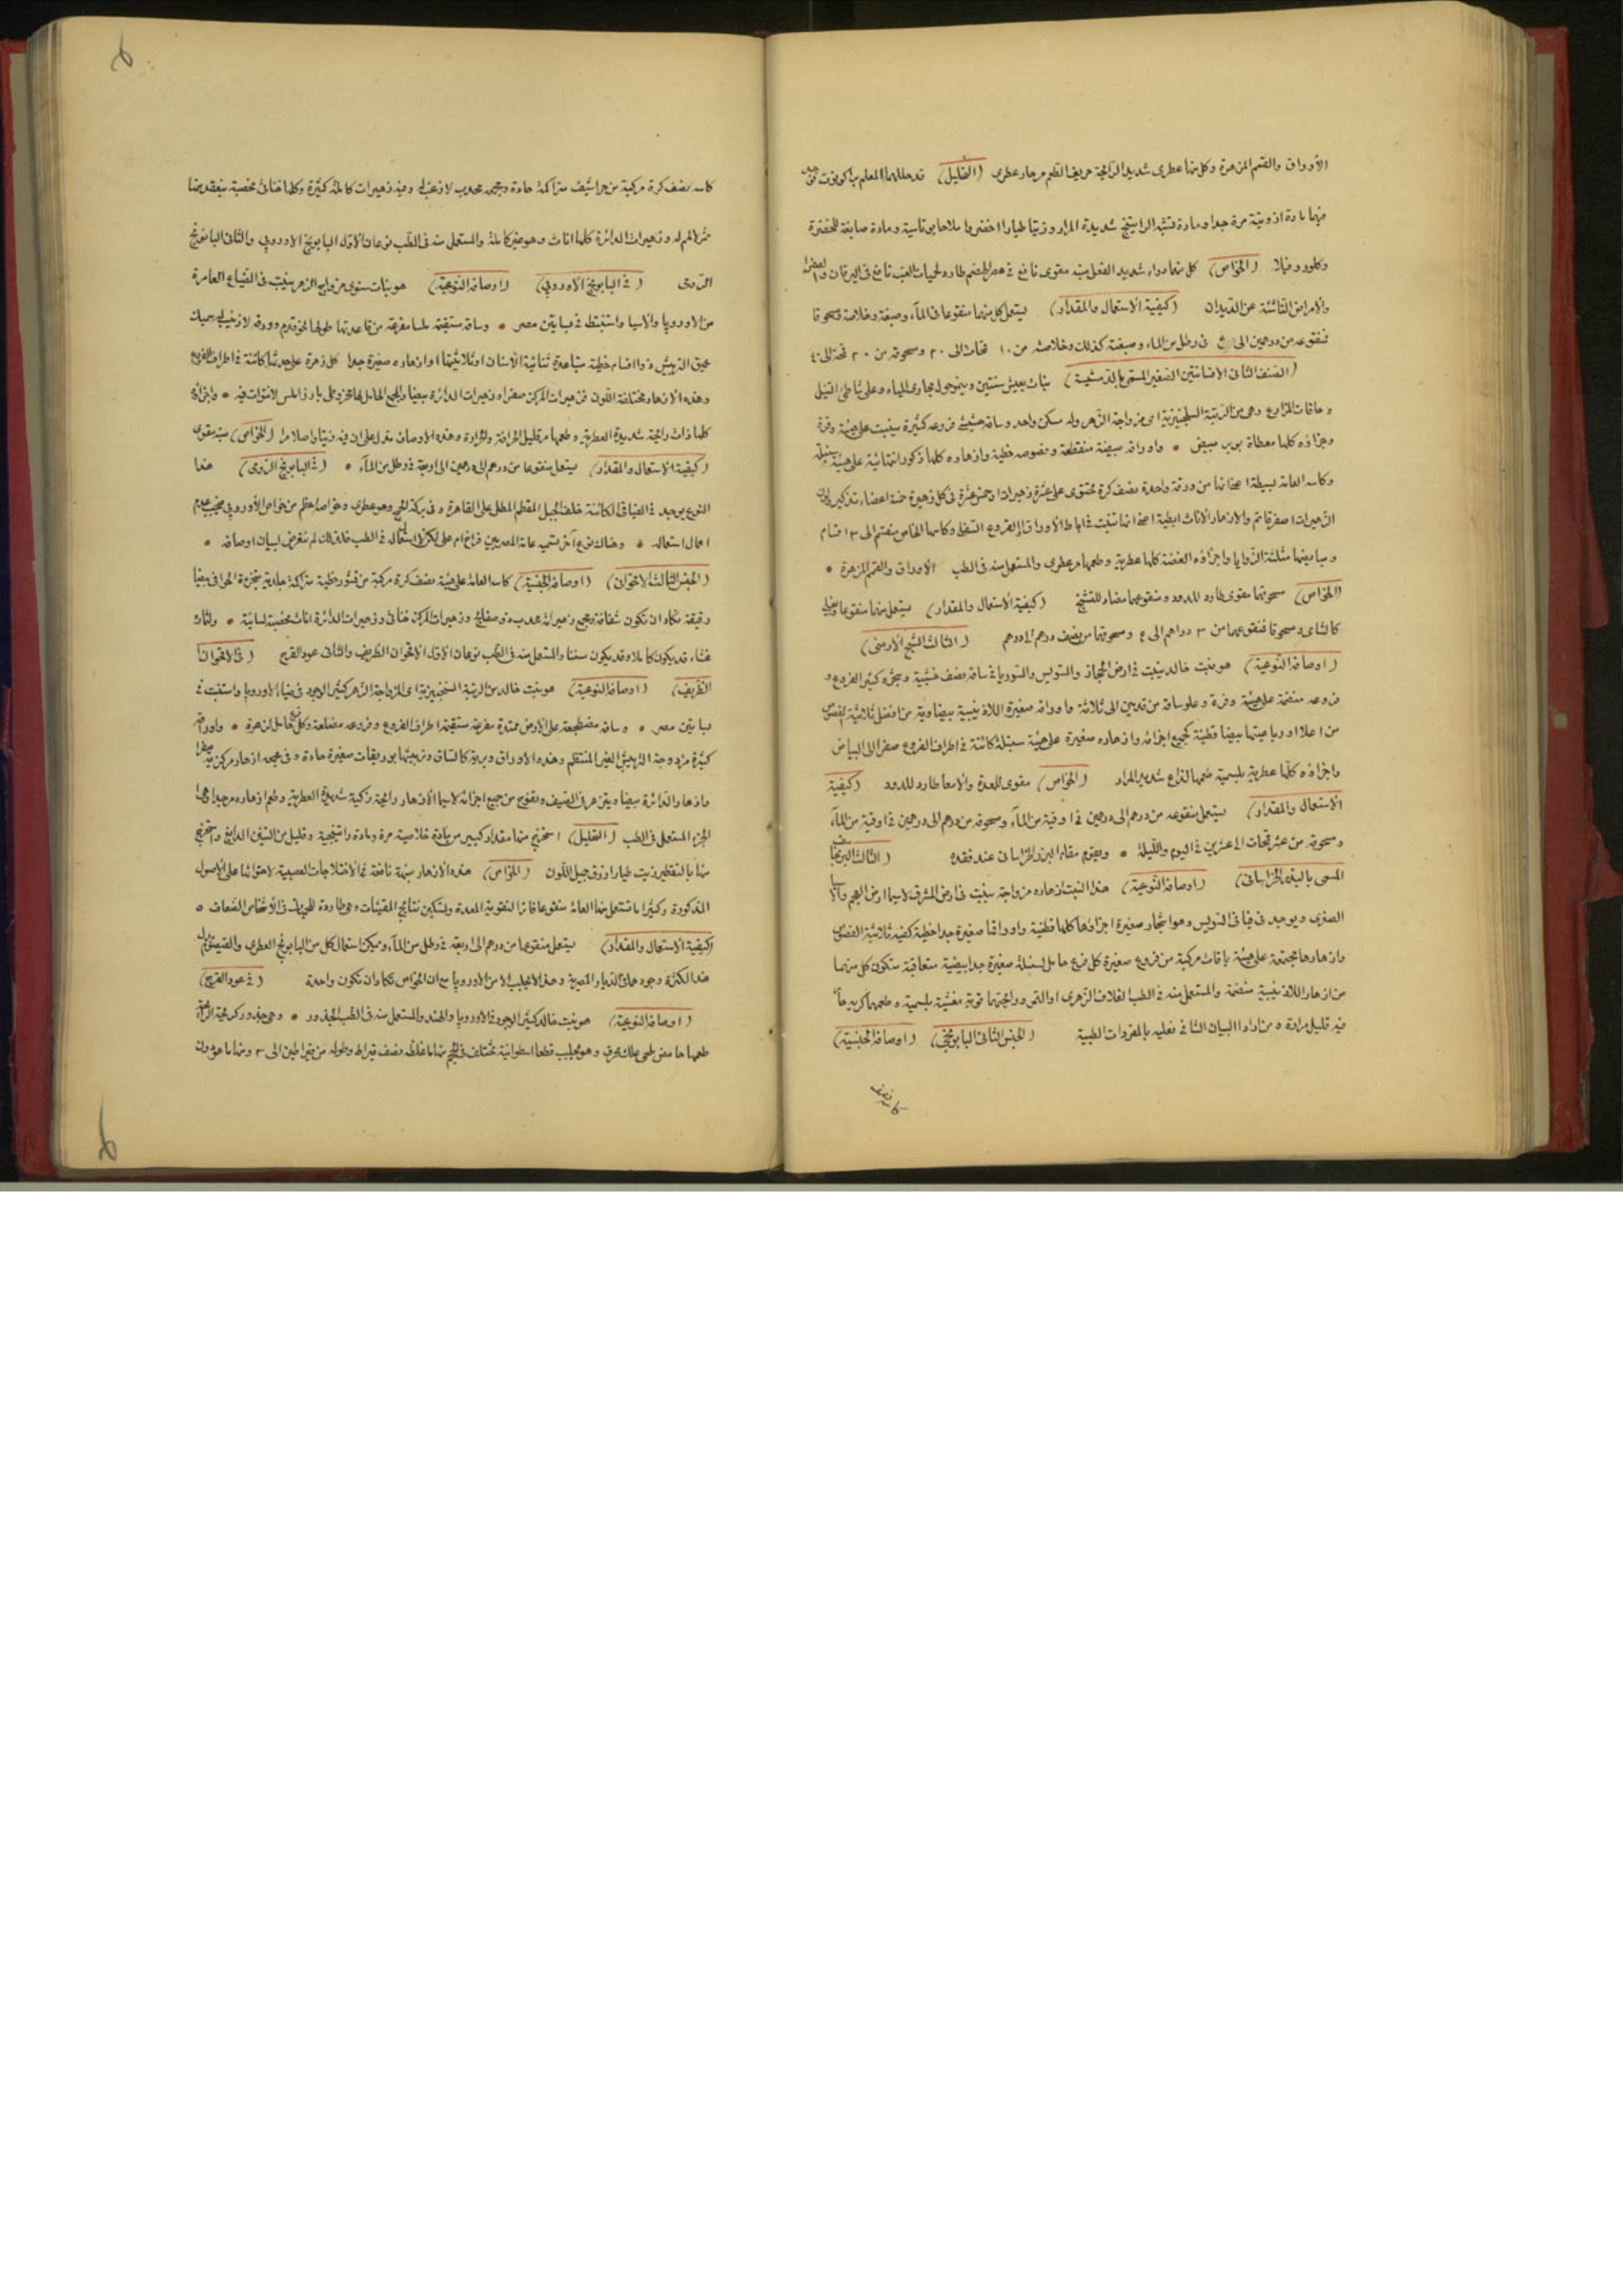 الأوراق والقمم المزهرة وكل منها عطرى شديد الرائحة حريف الطعم مر حار عطرى (التحليل) قد حللها المعلم براكونوت
منها مادة ازوتية مرة جدا ومادة تشبه الراتينج شديدة المرار وزيتا طيارا اخضر واملاحا بوتاسية ومادة صابغة للخضرة
وكلوروفيلا (الخواص) كل منهما دواء شديد الفعل منبه مقوى نافع فى عسر الهضم طارد لحميات الغب نافع فى اليرقان
والامراض الناشئة عن الديدان (كيفية الاستعمال والمقدار) يستعمل كل منهما منقوعا فى الماء وصبغة وخلاصة ومسحوقا
فمنقوعه من درهمين الى ٤ فى رطل من الماء وصبغته كذلك وخلاصته من ١٠ قمحات الى ٢٠ ومسحوقه من ٢٠ قمحة الى ٤٠
(الصنف الثانى الافسانتين الصغير المسمى بالدمسيسة) نبات يعيش سنتين وينمو حول مجارى المياه وعلى شاطئ النيل
وحافات المزارع وهى من الرتبة السنجنيزية اى مزواجة الزهر وله مسكن واحد وساقه حشيشى فروعه كثيرة ينبت على هيئة وفرة
وجزاؤه كلها مغطاة بوبر مبيض • واوراقه بيضية منقطعة وفصوصه خطية وازهاره كلها ذكور انتهائية على هيئة سنبلة
وكاسه العامة بسيطة اعنى انها من ورقة واحدة نصف كرة تحتوى على عشرة زهيرات او خمس عشرة فى كل زهيرة خمسة اعضاء تذكير ولون
الزهيرات اصفر قاتم والازهار الاناث ابطية اعنى انها تنبت فى اباط الاوراق او الفروع السفلى وكاسها الخاص منقسم الى ٣ اقسام
ومبايضها مثلثة الزوايا واجزاؤه الغضة كلها عطرية وطعمها مر عطرى والمستعمل منه فى الطب الاوراق والقمم المزهرة •
(الخواص) مسحوقها مقوى طارد للدود ومنقوعها مضاد للتشنج (كيفية الاستعمال والمقدار) يستعمل منها منقوعا
كالشاى ومسحوقا فمنقوعها من ٣ دراهم الى ٤ ومسحوقها من نصف درهم الى درهم (الثالث الشيح الارمنى)
(اوصافه النوعية) هو نبت خالد ينبت فى ارض الحجاز والسويس والسوريا فى ساقه نصف خشبية وتحزه كثير الفروع و
فروعه منضمة على هيئة وفرة وعلو ساقه من قدمين الى ثلاثة واوراقه صغيرة اللاذنيبية بيضاوية
من اعلا اورباعيتها بيضا قطنية كجميع اجزائه وازهاره صغيرة على هيئة سنبلة كائنة فى اطراف الفروع صفر الى البياض
واجزاؤه كلها عطرية بلسمية طعمها لذاع شديد المرار (الخواص) مقوى للمعدة والامعا طارد للدود (كيفية
الاستعمال والمقدار) يستعمل منقوعه من درهم الى درهمين فى ا وقية من الماء ومسحوقه من درهم الى درهمين فى اوقية من الماء
ومسحوقه من عشر قمحات الى عشرين فى اليوم والليلة • ويقوم مقام البزر الخراسانى عند فقده
المسمى بالبذر الخراسانى) (اوصافه النوعية) هذا النبت ازهاره مزواجة ينبت فى ارض المشرق لاسيما ارض العجم
الصغرى ويوجد فى فيافى السويس وهو اشجار صغيرة اجزاؤها كلها قطنية واوراقها صغيرة جدا خطية كفية ثلاثية الفصوص
وازهارها مجتمعة على هيئة باقات مركبة من فروع صغيرة كل فرع حامل لسنبلة صغيرة جدا بيضية متعاقبة متكون كل منهما
من ازهار اللاذنيبية منضمة والمستعمل منه فى الطب الغلاف الزهرى او التمر ورائحتها قوية مغشية بلسمية وطعمها كريه
فيه قليل مرارة ٥ من اراد البيان الشافى فعليه بالمفردات الطبية (الجنس الثانى البابونجى) (اوصافه الجنسية)
كاسه نصف
كاسه نصف كرة مركبة من حراشيف متراكمة حادة ومجمعه محدب لازغب له وفيه زهيرات كاملة كثيرة وكلها خناثى مخصبة
وزهيرات الدائرة كلها اناث وهو غير كاملة والمستعمل منه فى الطب نوعان الاول البابونج الاوروبى والثانى البابونج
الرومى (فى البابونج الاوروبى) (اوصافه النوعية) هو نبات سنوى مزواج الزهر ينبت فى الضياع العامرة
من الاوروبا والاسيا واستنبط فى بساتين مصر • وساقه مستقيمة ملسا مفرقة من قاعدتها طولها نحو قدم وورقه لازغب له سميك
عميق التريش ذو اقسام خطية متباعدة ثنائية الاسنان او ثلاثيتها وازهاره صغيرة جدا كل زهرة على حدتها كائنة فى اطراف الفروع
وهذه الازهار مختلفة اللون فزهيرات المركز صفر وزهيرات الدائرة بيضا والمجمع الحامل لها مخروطى بارز املس لافتوات فيه • واجزاؤه
كلها ذات رائحة شديدة العطرية وطعمها مر قليل الحرافة والمرارة وهذه الاوصاف تدل على ان فيه زيتا واصلا مرا (الخواص) منبه مقوى
(كيفية الاستعمال والمقدار) يستعمل منقوعا من درهم الى درهمين الى اربعة فى رطل من الماء • (فى البابونج الرومى) هذا
النوع يوجد فى الفيافى الكائنة خلف الجبل المقطم المطل على القاهرة وفى بركة الحج وهو عطرى وخواصه اعظم من خواص الاوروبى فيجب عدم
اهمال استعماله • وهناك نوع آخر تسميه عامة المصريين فراخ ام على لكن لا استعمال له فى الطب فلذلك لم نتعرض لبيان اوصافه •
(الجنس الثالث الاقحوان) (اوصافه الجنسية) كاسه العامة على هيئة نصف كرة مركبة من قشور خطية متراكمة جلدية متحززة الحوافى بيضا
رقيقة تكاد ان تكون شفافة ومجمع زهيراته محدب ذو صفائح وزهيرات المركز خناثى وزهيرات الدائرة اناث مخصبة لسانية •
غشاء قد يكون كاملا وقد يكون مسننا والمستعمل منه فى الطب نوعان الاول الاقحوان الظريف والثانى عود القرح (فى الاقحوان
الظريف) (اوصافه النوعية) هو نبت خالد من الرتبة السنجنيزية اى المزواجة الزهر كثير الوجود فى ضياع الاوروبا واستنبت فى
بساتين مصر • وساقه مضطجعة على الارض ممتدة متفرعة مستقيمة اطراف الفروع وفروعه مضلعة وكل فرع حامل لزهرة • واوراقه
كثيرة مزدوجة التريش الغير المنتظم وهذه الاوراق وبرية كالساق وتريشها بوريقات صغيرة حادة وفى مجمعه ازهار مركزية صفرا
وازهار الدائرة بيضا ويتزهر فى الصيف وتفوح من جميع اجزائه لاسيما الازهار رائحة زكية شديدة العطرية وطعم ازهاره مر جدا وهى
الجزء المستعمل فى الطب (التحليل) استخرج منها مقدار كبير من مادة خلاصية مرة ومادة راتنجية وقليل من التنين الدابغ واستخرج
منها بالتقطير زيت طيار ازرق جميل اللون (الخواص) هذه الازهار منبهة نافعة فى الاختلاجات العصبية لاحتوائها على الاصول
المذكورة وكثيرا ما تستعمل منها العامة منقوعا فاترا لتقوية المعدة وتسكين نتائج المقيئات وهى طاردة للحميات فى الاشخاص الضعاف ٥
(كيفية الاستعمال والمقدار) يستعمل منقوعها من درهم الى اربعة فى رطل من الماء ويمكن استعمال كل من البابونج العطرى والقيصوم بدل
هذا لكثرة وجودهما فى الديار المصرية وهذا لا يجلب الا من الاوروبا مع ان الخواص تكاد ان تكون واحدة (فى عود القرح)
(اوصافه النوعية) هو نبت خالد كثير الوجود فى الاوروبا والهند والمستعمل منه فى الطب الجذور • وهى جذور كريهة الرائحة
طعمها حامض ملحى محرق وهو يجلب قطعا اسطوانية تختلف فى الحجم منها ما غلظه نصف قيراط وطوله من قيراطين الى ٣ ومنها ما هو دون